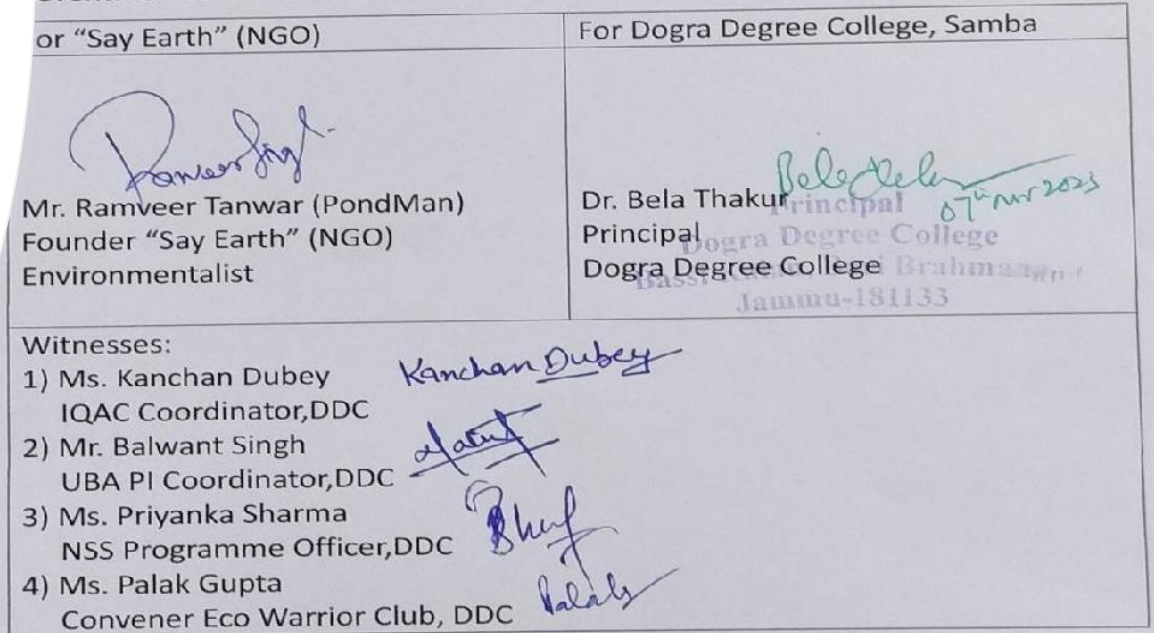 or “Say Earth” (NGO)
For Dogra Degree College, Samba
Ramveer Singh
Mr. Ramveer Tanwar (PondMan)
Founder “Say Earth” (NGO)
Environmentalist
Dr. Bela Thakur
Principal
Dogra Degree College
Principal
Dogra Degree College
Jammu-181133
Witnesses:
1) Ms. Kanchan Dubey
Kanchan Dubey
IQAC Coordinator,DDC
2) Mr. Balwant Singh
UBA PI Coordinator,DDC
3) Ms. Priyanka Sharma
NSS Programme Officer,DDC
4) Ms. Palak Gupta
Palak
Convener Eco Warrior Club, DDC